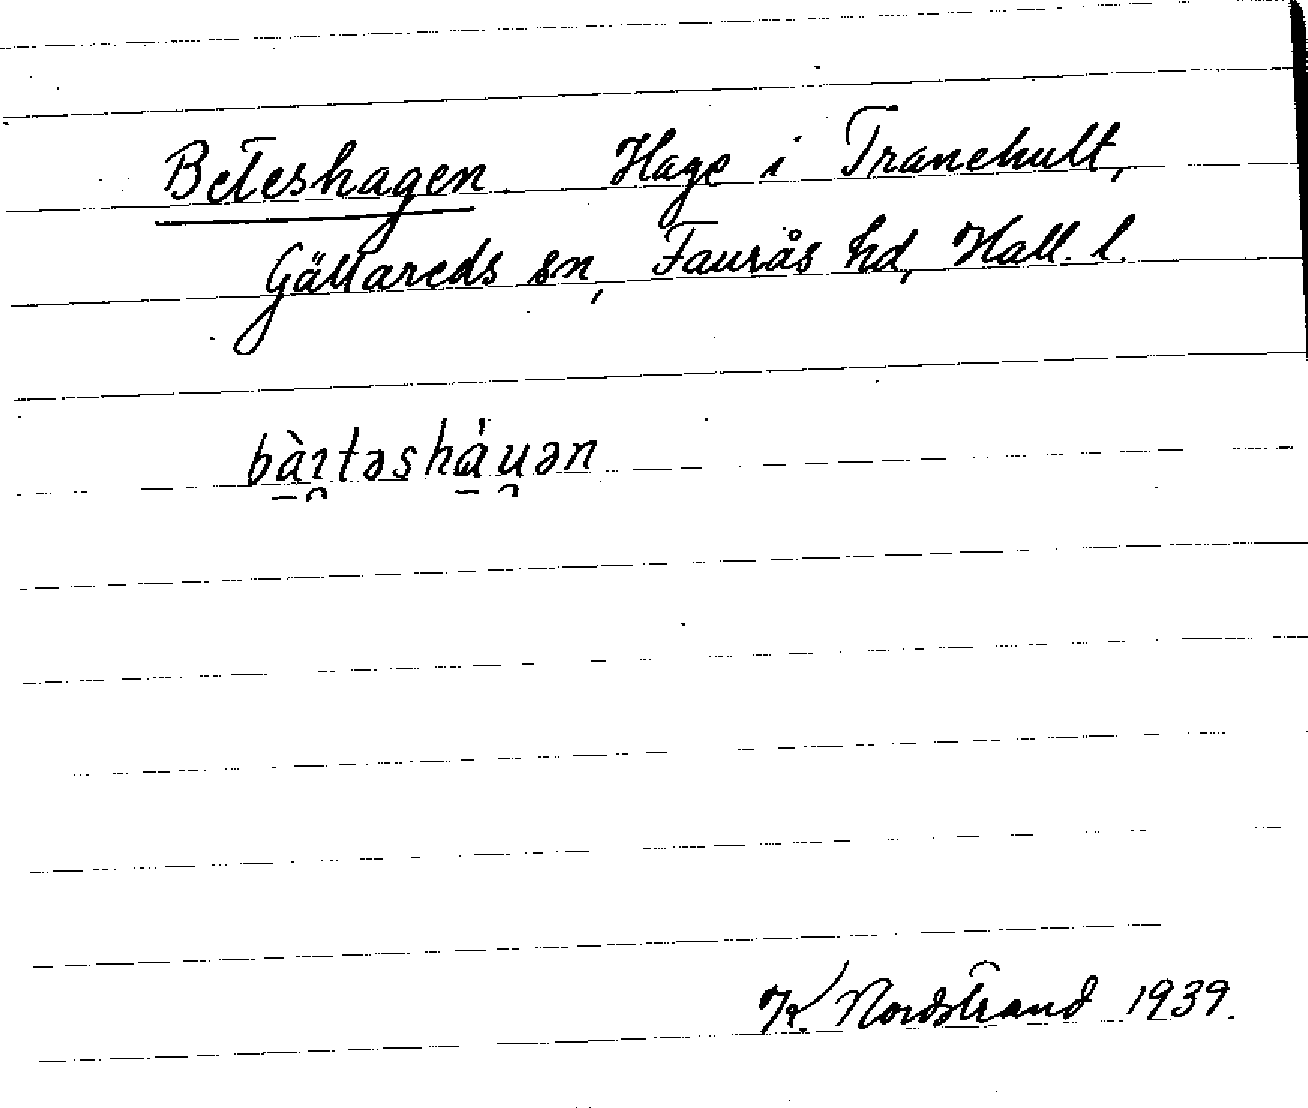 Beteshagen. Hage i Tranehult,
Gällareds sn, Faurås hd, Hall. l.
bàɪ̯təshàu̯ən
K. Nordstrand 1939.